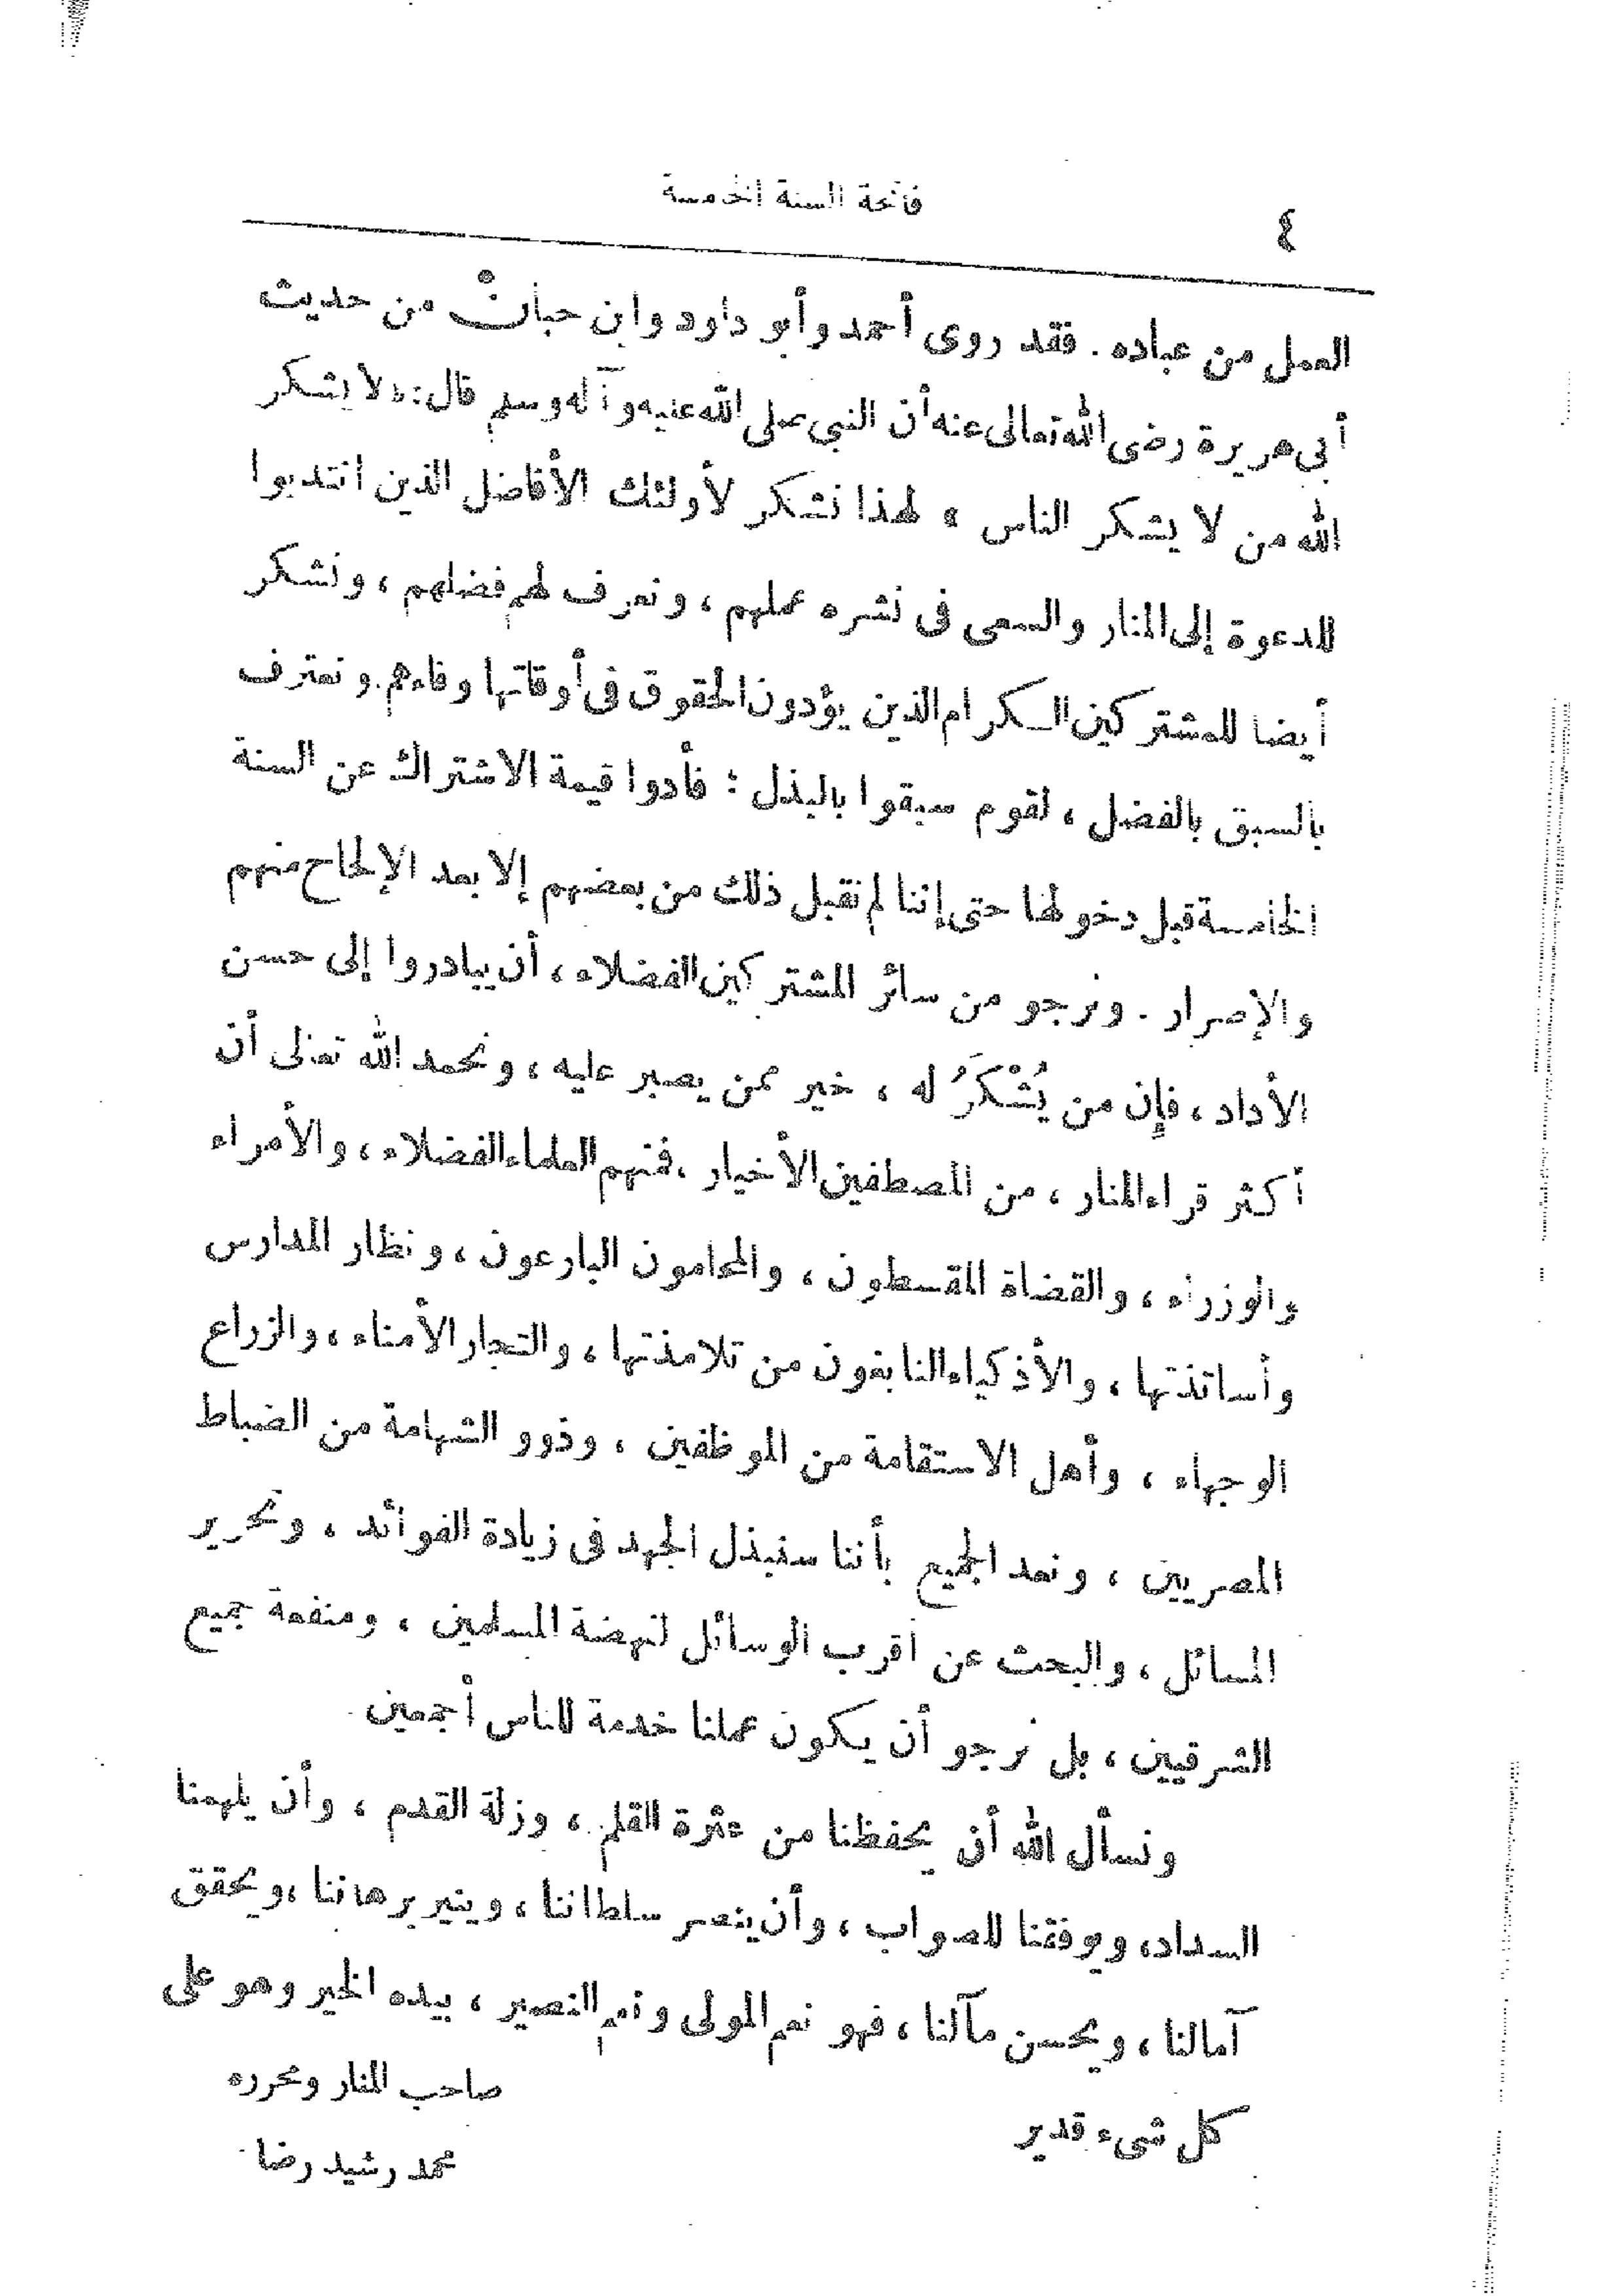 ٤
فاتحة السنة الخامسة
العمل من عباده . فقد روى أحمد وأبو داود وابن حبان من حديث
أبى هريرة رضى الله تعالى عنه أن النبى صلى الله عليه وآله وسلم قال: « لا يشكر
الله من لا يشكر الناس » لهذا نشكر لأولئك الأفاضل الذين انتدبوا
للدعوة إلى المنار والسعى فى نشره عملهم ، ونعرف لهم فضلهم ، ونشكر
أيضا للمشتركين الكرام الذين يؤدون الحقوق فى أوقاتها وفاءهم. ونعترف
بالسبق بالفضل ، لقوم سبقوا بالبذل : فأدوا قيمة الاشتراك عن السنة
الخامسة قبل دخولها حتى إننا لم نقبل ذلك من بعضهم إلا بعد الإلحاح منهم
والإصرار . ونرجو من سائر المشتركين الفضلاء ، أن يبادروا إلى حسن
الأداء ، فإن من يُشْكَرُ له ، خير ممن يصبر عليه ، ونحمد الله تعالى أن
أكثر قراء المنار ، من المصطفين الأخيار ، فمنهم العلماء الفضلاء ، والأمراء
والوزراء ، والقضاة المقسطون ، والمحامون البارعون ، ونظار المدارس
وأساتذتها ، والأذكياء النابغون من تلامذتها ، والتجار الأمناء ، والزراع
الوجهاء ، وأهل الاستقامة من الموظفين ، وذوو الشهامة من الضباط
المصريين ، ونعد الجميع بأننا سنبذل الجهد فى زيادة الفوائد ، وتحرير
المسائل ، والبحث عن أقرب الوسائل لنهضة المسلمين ، ومنفعة جميع
الشرقيين ، بل نرجو أن يكون عملنا خدمة للناس أجمعين
ونسأل الله أن يحفظنا من عثرة القلم ، وزلة القدم ، وأن يلهمنا
السداد، ويوفقنا للصواب ، وأن ينصر سلطاننا ، وينير برهاننا ، ويحقق
آمالنا ، ويحسن مآلنا ، فهو نعم المولى ونعم النصير ، بيده الخير وهو على
كل شىء قدير
صاحب المنار ومحرره
محمد رشيد رضا